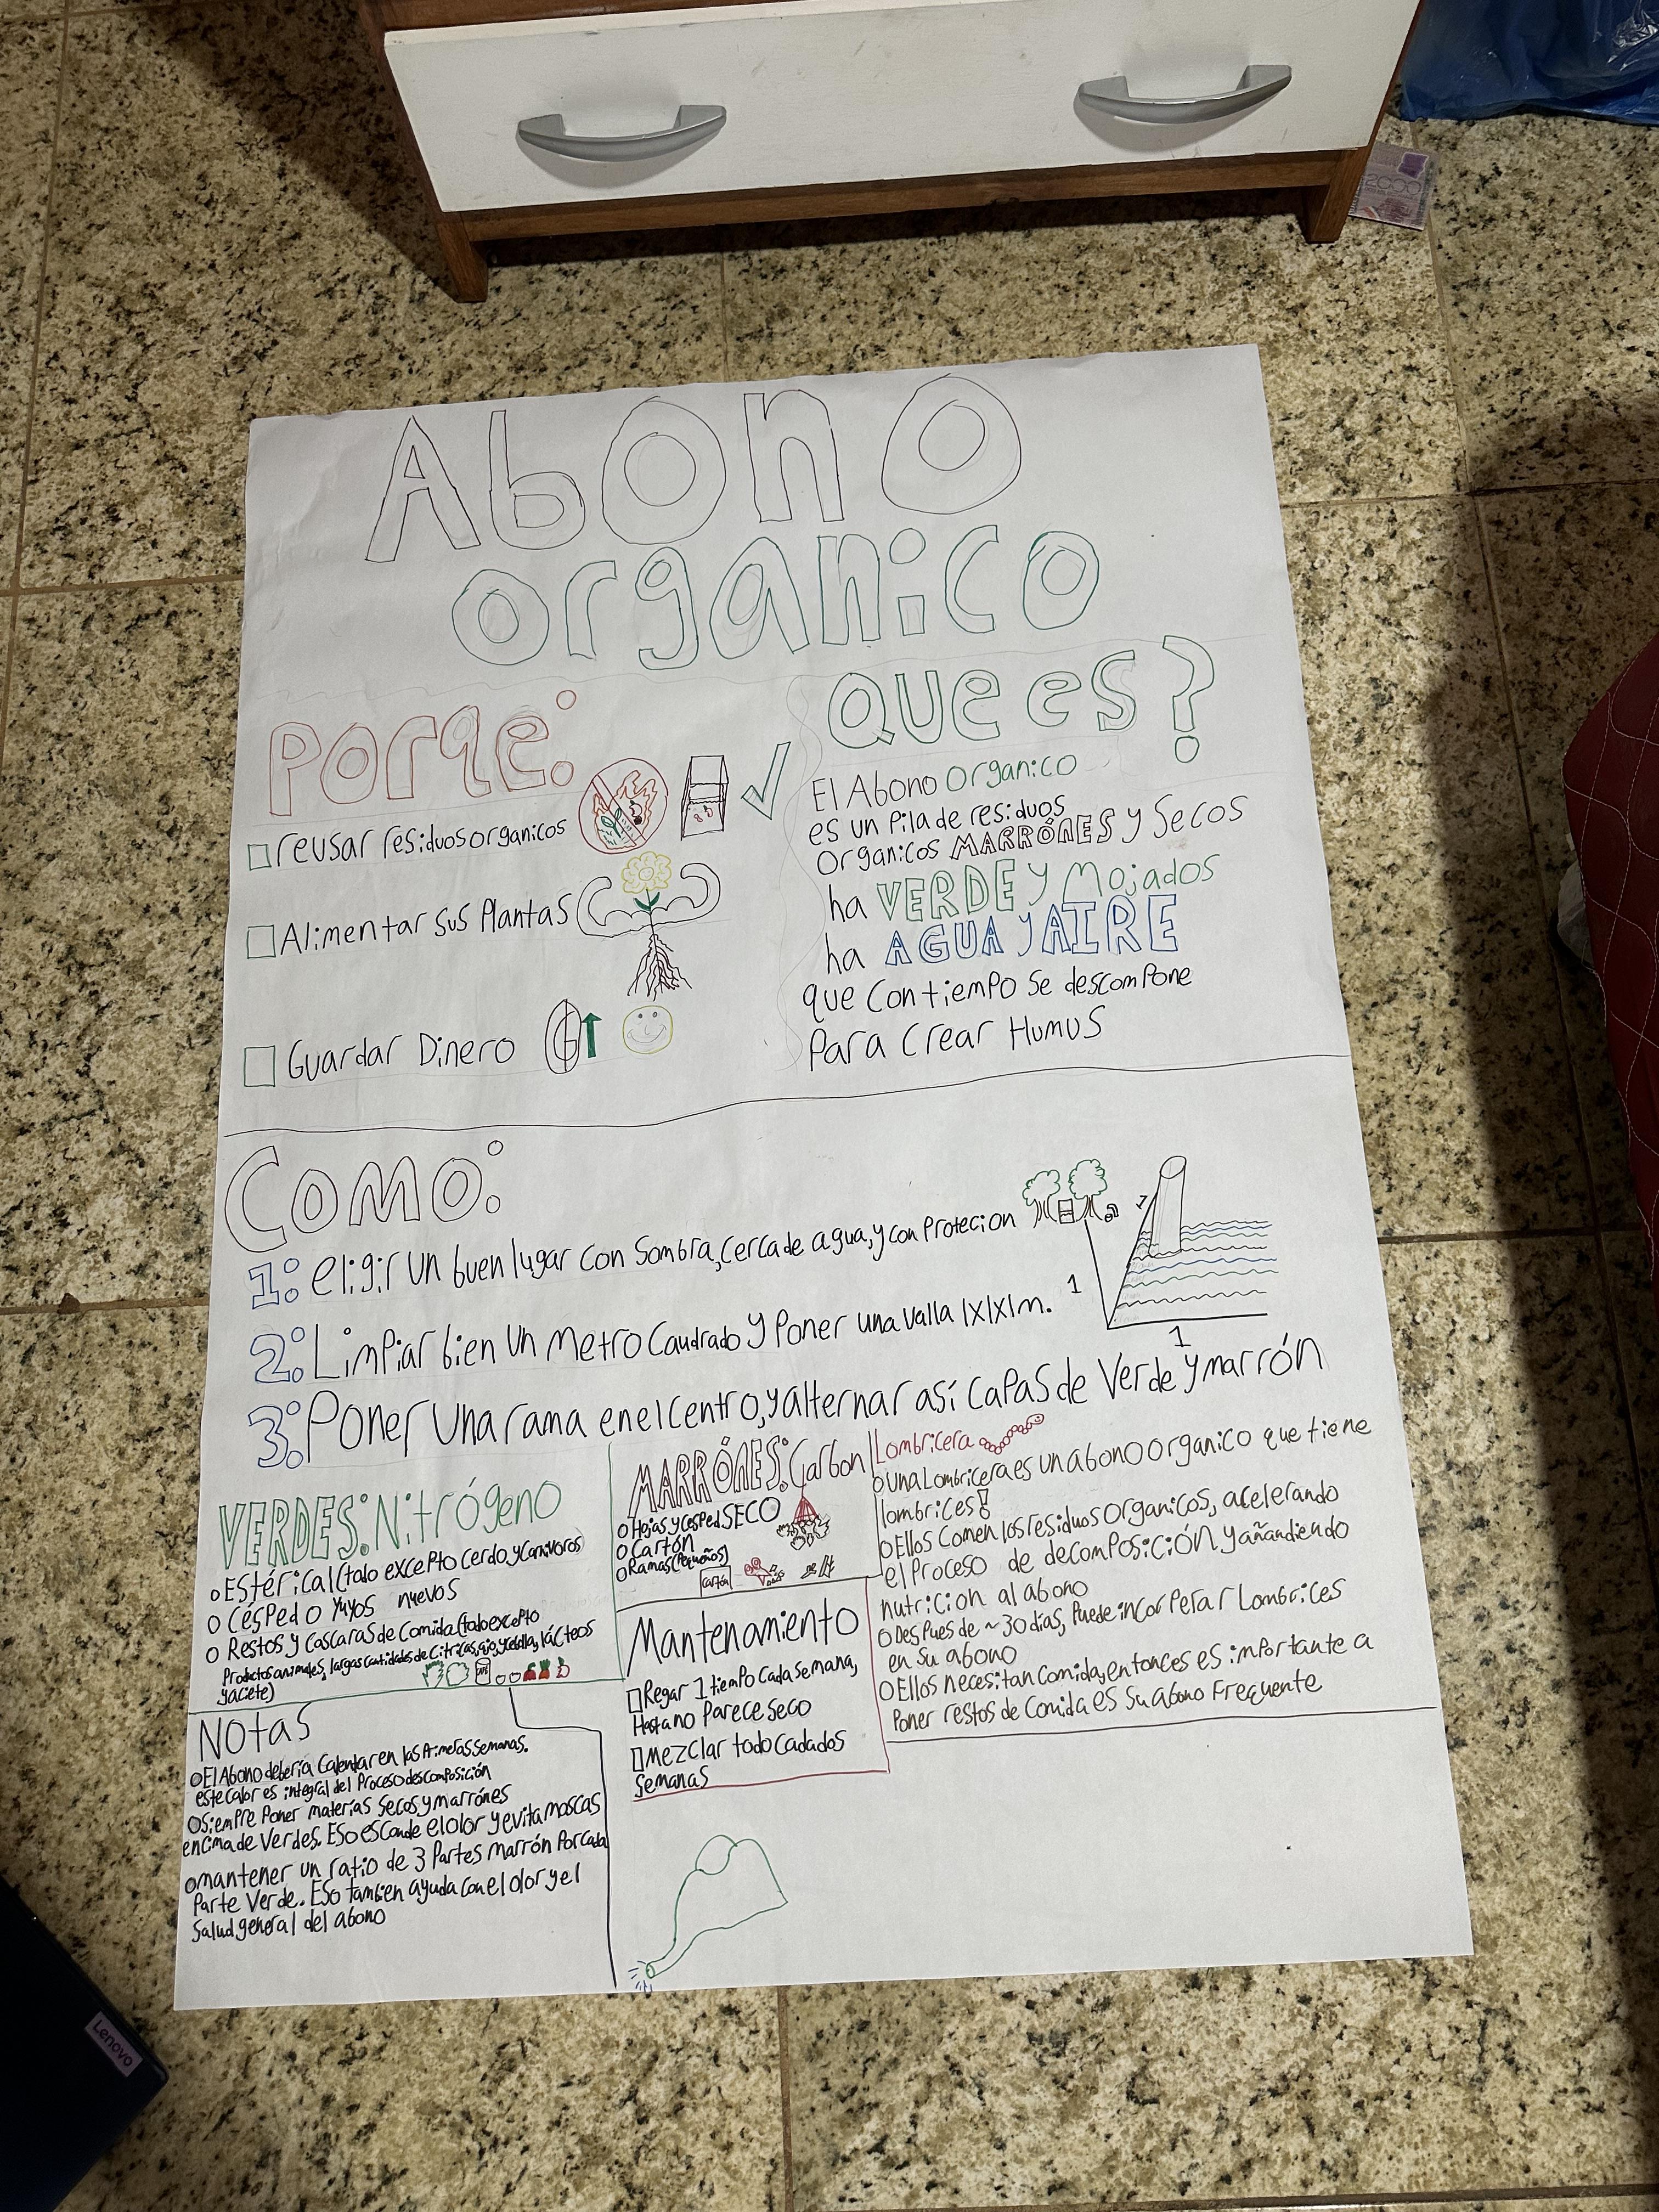 Abono
organico
porqe:
reusar residuos organicos
Alimentar sus Plantas
Guardar Dinero
que es?
El Abono organico
es un pila de residuos
organicos MARRÓNES y Secos
ha VERDE y Mojados
ha AGUA y AIRE
que con tiempo se descompone
para crear Humus
Como:
1: eligir un buen lugar con sombra, cerca de agua, y con protecion
2: Limpiar bien un metro caudrado y poner una valla 1x1x1m.
1
1
1
3: Poner una rama en el centro, y alternar así capas de verde y marrón
VERDES: Nitrógeno
o Estérical (todo excepto cerdo, y carnivoros)
o Césped o yuyos nuevos
o Restos y cascaras de comida (todo excepto
Productos animales, largas cantidades de citricas, ajo y cebolla, lácteos
y aciete)
MARRÓNES: Carbon
o Hojas y cesped SECO
o Cartón
o Ramas (Pequeños)
cartón
Mantenamiento
Regar 1 tiempo cada semana,
Hasta no parece seco
Mezclar todo cada dos
semanas
Lombricera
o una Lombricera es un abono organico que tiene
lombrices!
o Ellos comen los residuos organicos, acelerando
el proceso de decomposición, y añandiendo
nutricion al abono
o Despues de ~30 dias, puede incorperar Lombrices
en su abono
o Ellos necesitan comida, entonces es importante a
poner restos de comida es su abono frequente
Notas
o El Abono debería calentar en las primeras semanas.
este calor es integral del proceso descomposición
o Siempre poner materias secos y marrónes
encima de verdes. Eso esconde el olor y evita moscas
o mantener un ratio de 3 partes marrón por cada
parte verde. Eso tambien ayuda con el olor y el
salud general del abono
Lenovo